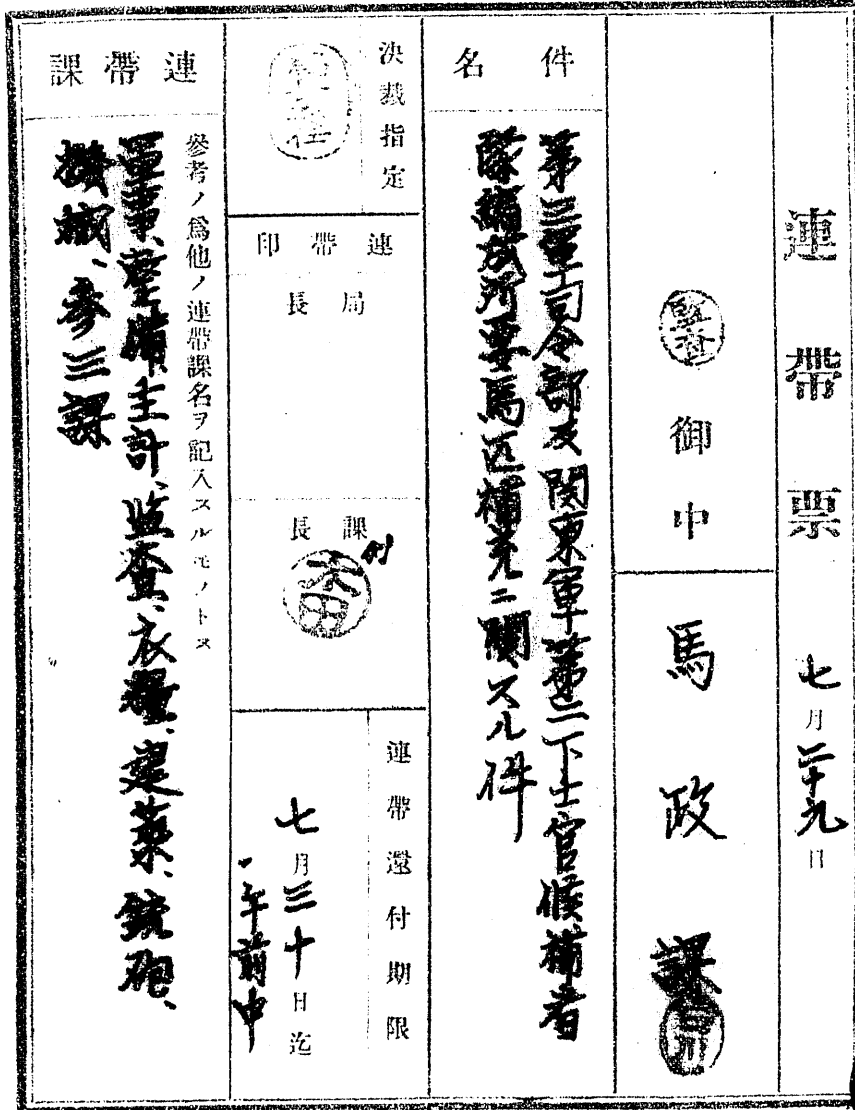 連帶票 七月二十九日
監査 御中
馬政課
件名
第三軍司令部及関東軍第二下士官候補者
隊編成所要馬匹補充ニ関スル件
決裁指定
連帶印
局長
課長
連帶還付期限
七月三十日迄
午前中
連帶課
參考ノ爲他ノ連帶課名ヲ記入スルモノトス
軍事、整備、主計、監査、衣糧、建築、銃砲、
機械、参三課